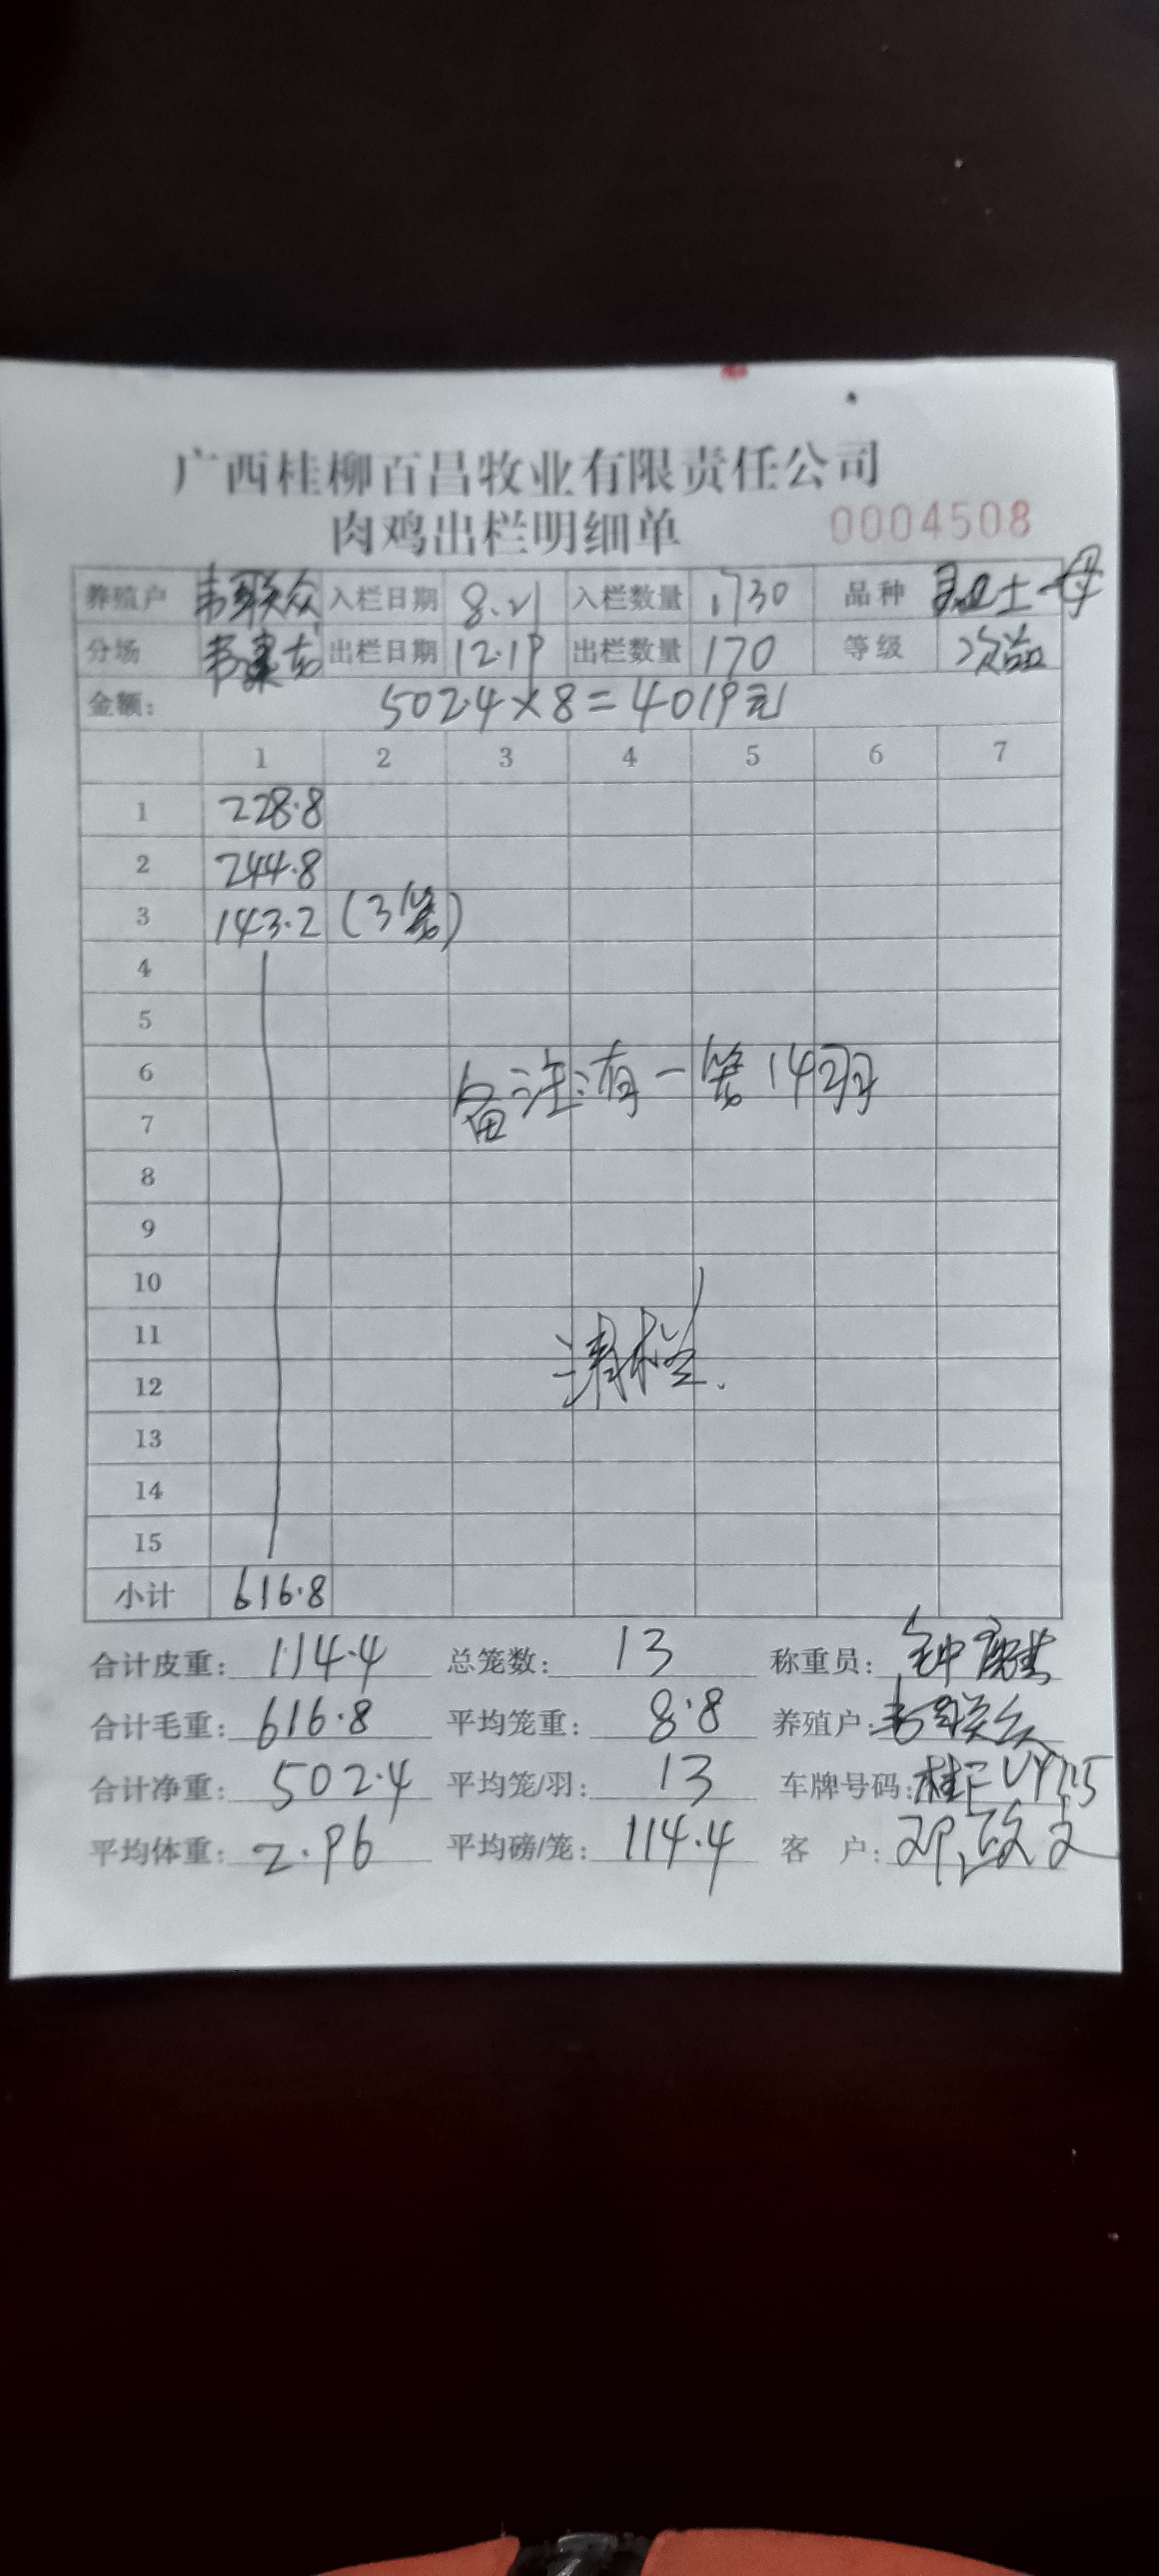 广西桂柳百昌牧业有限责任公司
肉鸡出栏明细单 0004508
养殖户 韦联众 入栏日期 8.21 入栏数量 1730 品种 土母
分场 韦 出栏日期 12.19 出栏数量 170 等级 次品
金额: 502.4×8=4019元
1 2 3 4 5 6 7
1 228.8
2 244.8
3 143.2 (3笼)
4
5
6 备注:有一笼14羽
7
8
9
10
11 清栏.
12
13
14
15
小计 616.8
合计皮重: 114.4 总笼数: 13 称重员: 钟
合计毛重: 616.8 平均笼重: 8.8 养殖户: 韦联众
合计净重: 502.4 平均笼/羽: 13 车牌号码: 桂F
平均体重: 2.96 平均磅/笼: 114.4 客 户: 邓政文